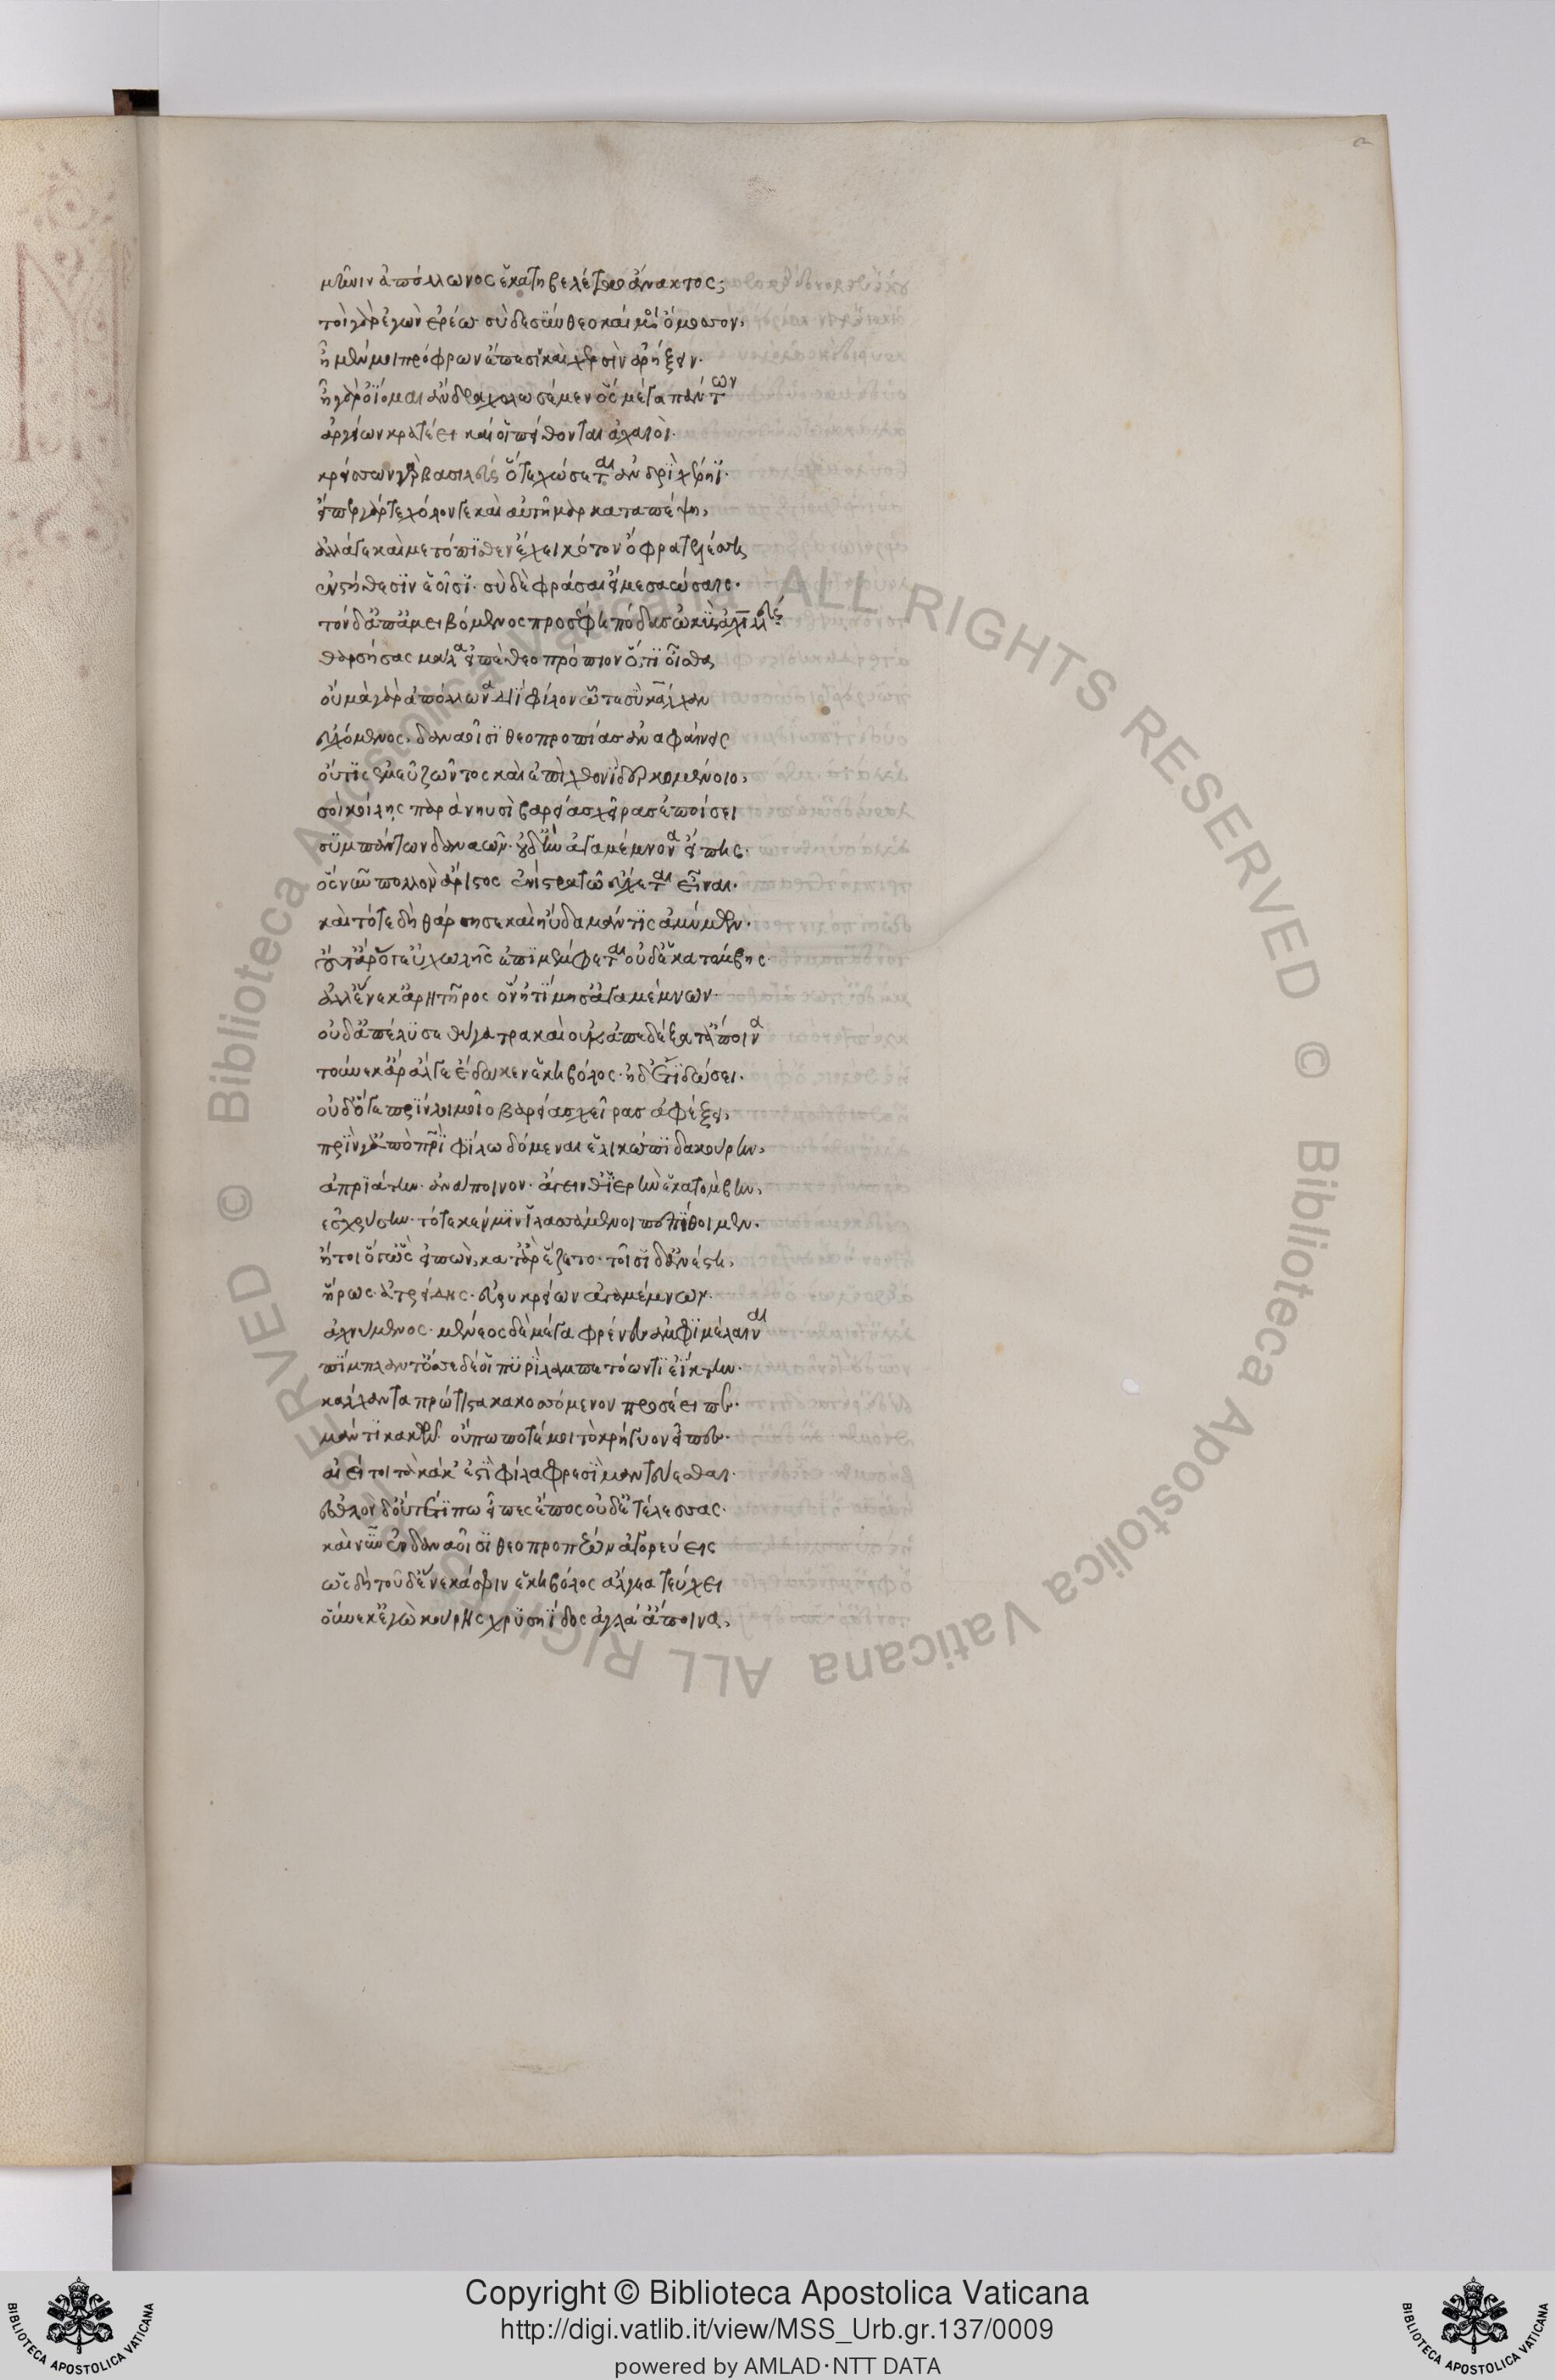 μῆνιν ἀπόλλωνος ἑκατηβελέταο ἄνακτος;
τοὶ γὰρ ἐγὼν ἐρέω σὺ δὲ σύνθεο καί μοι ὄμοσον,
ἦ μέν μοι πρόφρων ἔπεσι καὶ χερσὶν ἀρήξειν.
ἦ γὰρ ὀΐομαι ἄνδρα χολωσέμεν ὃς μέγα πάντων
ἀργείων κρατέει καί οἱ πείθονται ἀχαιοὶ.
κρείσσων γὰρ βασιλεὺς ὅτε χώσεται ἀνδρὶ χέρηϊ.
εἴπερ γάρ τε χόλον γε καὶ αὐτῆμαρ καταπέψῃ,
ἀλλά γε καὶ μετόπισθεν ἔχει κότον ὄφρα τελέσσῃ
ἐν στήθεσιν ἑοῖσι. σὺ δὲ φράσαι εἴ με σαώσεις.
τὸν δ' ἀπαμειβόμενος προσέφη πόδας ὠκὺς ἀχιλλεύς
θαρσήσας μάλα εἰπὲ θεοπρόπιον ὅ,τι οἶσθα,
οὐ μὰ γὰρ ἀπόλλωνα διῒ φίλον ὧ τε σὺ κάλχαν
εὐχόμενος, δαναοῖσι θεοπροπίας ἀναφαίνεις
οὔτις ἐμεῦ ζῶντος καὶ ἐπὶ χθονὶ δερκομένοιο,
σοὶ κοίλης παρὰ νηυσὶ βαρείας χεῖρας ἐποίσει
συμπάντων δαναῶν. οὐδ' ἢν ἀγαμέμνονα εἴπῃς.
ὃς νῦν πολλὸν ἄριστος ἐνὶ στρατῷ εὔχεται εἶναι.
καὶ τότε δὴ θάρσησε καὶ ηὔδα μάντις ἀμύμων.
οὔτ' ἄρ' ὅτ' εὐχωλῆς ἐπιμέμφεται οὐδ' ἑκατόμβης
ἀλλ' ἕνεκ' ἀρητῆρος ὃν ἠτίμησ' ἀγαμέμνων.
οὐδ' ἀπέλυσε θύγατρα καὶ οὐκ ἀπεδέξατ' ἄποινα
τοὔνεκ' ἄρ' ἄλγε' ἔδωκεν ἑκηβόλος. ἠδ' ἔτι δώσει.
οὐδ' ὅγε πρὶν λοιμοῖο βαρείας χεῖρας ἀφέξει,
πρίν γ' ἀπὸ πατρὶ φίλω δόμεναι ἑλικώπιδα κούρην,
ἀπριάτην. ἀνάποινον. ἄγειν θ' ἱερὴν ἑκατόμβην,
ἐς χρύσην. τότε κέν μιν ἱλασσάμενοι πεπίθοιμεν.
ἤτοι ὅγ' ὣς εἰπὼν, κατ' ἄρ' ἕζετο. τοῖσι δ' ἀνέστη,
ἥρως. ἀτρείδης. εὐρυκρείων ἀγαμέμνων.
ἀχνύμενος. μένεος δὲ μέγα φρένες ἀμφιμέλαιναι
πίμπλαντ' ὄσσε δέ οἱ πυρὶ λαμπετόωντι ἐΐκτην.
κάλχαντα πρώτιστα κακοσσόμενον προσέειπεν.
μάντι κακῶν. οὐπώποτέ μοι τὸ κρήγυον εἶπας.
αἰεί τοι τὰ κάκ' ἐστὶ φίλα φρεσὶ μαντεύεσθαι.
ἐσθλὸν δ' οὔτ' ἔτι πω εἶπες ἔπος οὐδὲ τέλεσσας.
καὶ νῦν ἐν δαναοῖσι θεοπροπέων ἀγορεύεις
ὡς δὴ τοῦδ' ἕνεκά σφιν ἑκηβόλος ἄλγεα τεύχει
οὕνεκ' ἐγὼ κούρης χρυσηΐδος ἀγλά' ἄποινα,
Copyright © Biblioteca Apostolica Vaticana
http://digi.vatlib.it/view/MSS_Urb.gr.137/0009
powered by AMLAD·NTT DATA